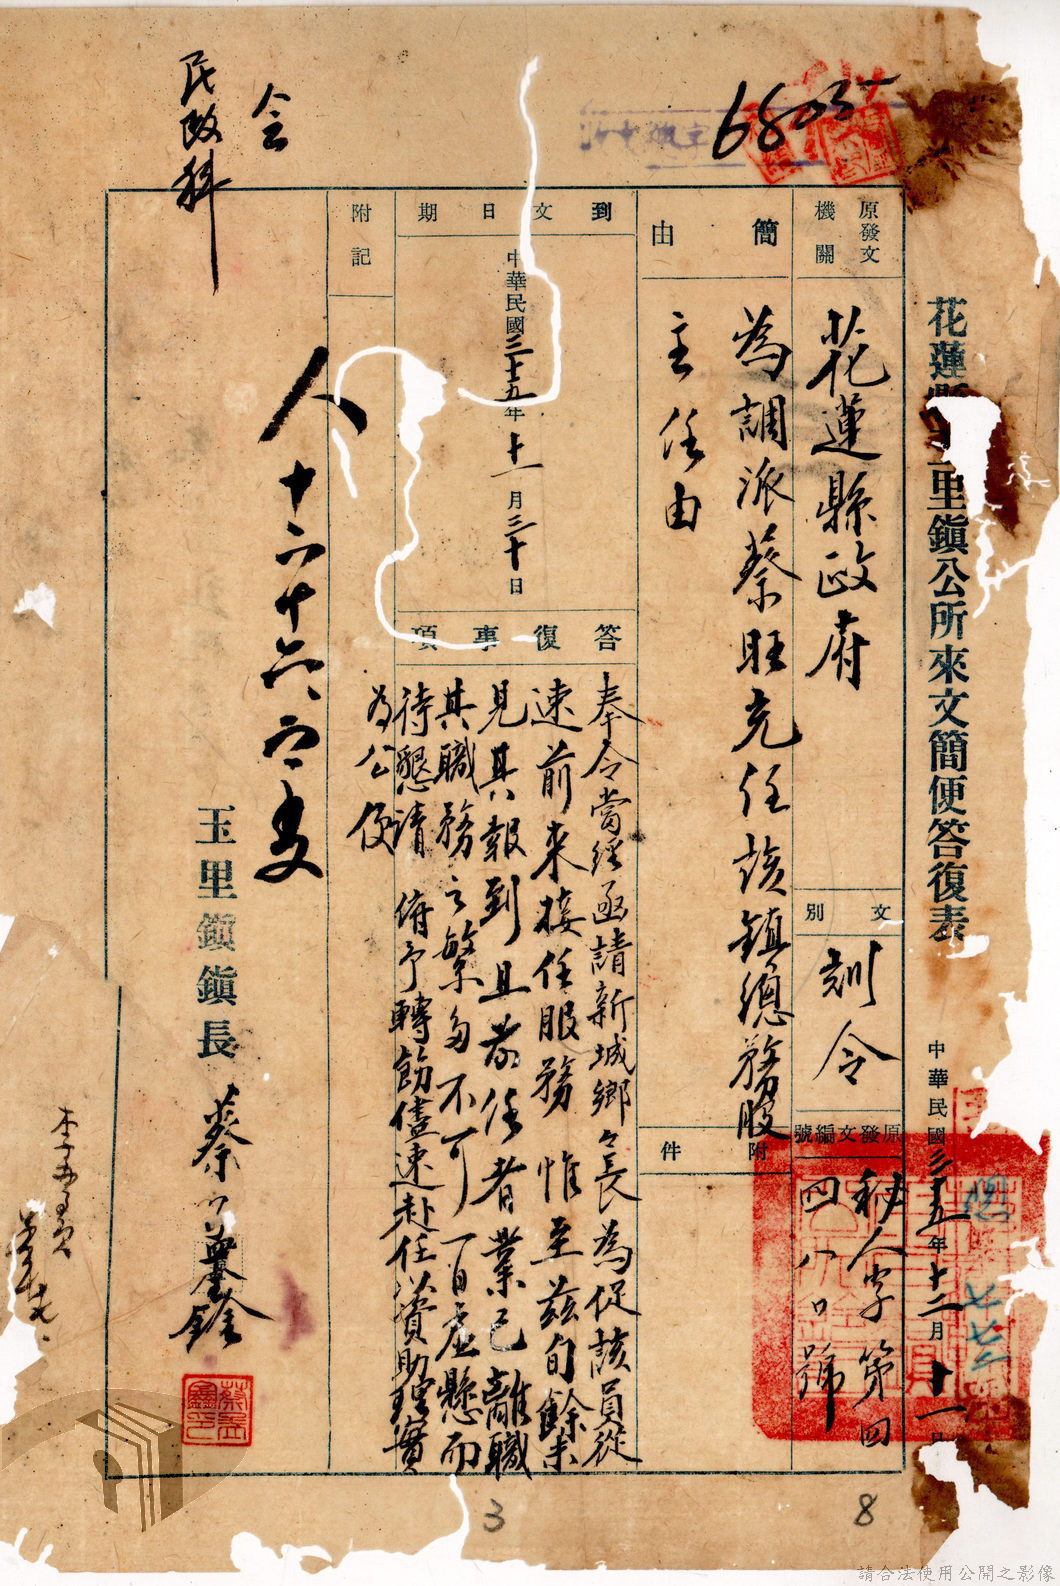 花蓮縣玉里鎮公所來文簡便答復表
中華民國三十五年十二月十一日
原發文機關
花蓮縣政府
文別
訓令
原發文編號
秘人字第四四八〇號
簡由
為調派蔡旺充任該鎮總務股
主任由
附件
到文日期
中華民國三十五年十一月三十日
答復事項
奉令當經函請新城鄉鄉長為促該員從
速前來接任服務惟至茲旬餘未
見其報到且前任者業已離職
其職務之繁多不可一日虛懸而
待懇請 俯予轉飭儘速赴任以資助理實
為公便
附記
玉里鎮鎮長
蔡
民政科
會
6803
8
3
請合法使用公開之影像